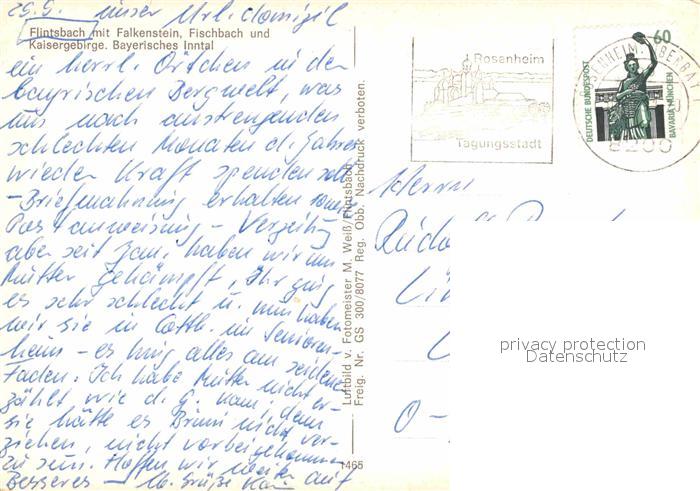 29.9. unser Url. domizil
Flintsbach mit Falkenstein, Fischbach und
Kaisergebirge. Bayerisches Inntal
ein herrl. Örtchen in der
bayrischen Bergwelt, was
uns nach anstrengenden
schlechten Monaten d. Jahres
wieder Kraft spenden soll
- Briefmahnung erhalten sowie
Postanweisung - Verzeihung
aber seit Jan. haben wir um
Mutter gekämpft, Ihr ging
es sehr schlecht u. nun haben
wir sie in Cottb. im Senioren-
heim - es hing alles am seidenen
Faden. Ich habe Mutter nicht er-
zählt wie d. G. kam, denn
sie hätte es nicht ver-
ziehen, nicht vorbeigekommen
zu sein. Hoffen wir weiter auf
Besseres - Lb. Grüße
Luftbild v. Fotomeister M. Weiß/Flintsbach
Freig. Nr. GS 300/8077 Reg. Obb. Nachdruck verboten
1465
Rosenheim
Tagungsstadt
ROSENHEIM, OBERBAY
8200
60
DEUTSCHE BUNDESPOST
BAVARIA MÜNCHEN
Herrn
O-
privacy protection
Datenschutz